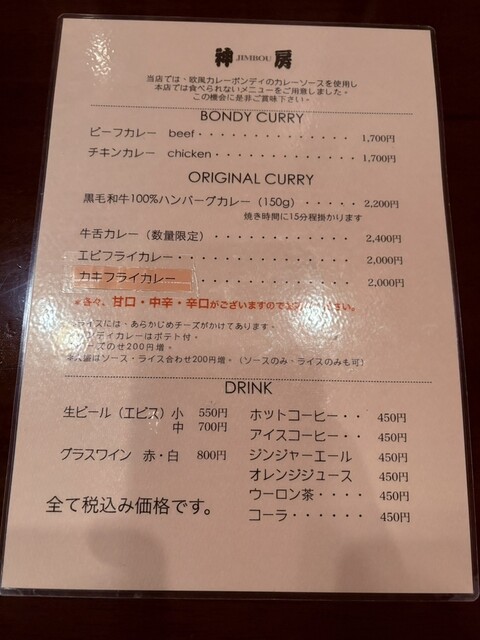 神 JIMBOU 房
当店では、欧風カレーボンディのカレーソースを使用し
本店では食べられないメニューをご用意しました。
この機会に是非ご賞味下さい。
BONDY CURRY
ビーフカレー beef・・・・・・・・・・・・・・・ 1,700円
チキンカレー chicken・・・・・・・・・・・・・ 1,700円
ORIGINAL CURRY
黒毛和牛100%ハンバーグカレー（150g）・・・・・ 2,200円
焼き時間に15分程掛かります
牛舌カレー（数量限定）・・・・・・・・・・・・・ 2,400円
エビフライカレー・・・・・・・・・・・・・・・・ 2,000円
カキフライカレー ・・・・・・・・・・・・・・・ 2,000円
*各々、甘口・中辛・辛口がございますので さい。
ライスには、あらかじめチーズがかけてあります。
ディカレーはポテト付。
ズのせ200円増。
盛はソース・ライス合わせ200円増。（ソースのみ・ライスのみも可）
DRINK
生ビール（エビス）小 550円
中 700円
グラスワイン 赤・白 800円
ホットコーヒー・・ 450円
アイスコーヒー・・ 450円
ジンジャーエール 450円
オレンジジュース 450円
ウーロン茶・・・・ 450円
コーラ・・・・・・ 450円
全て税込み価格です。